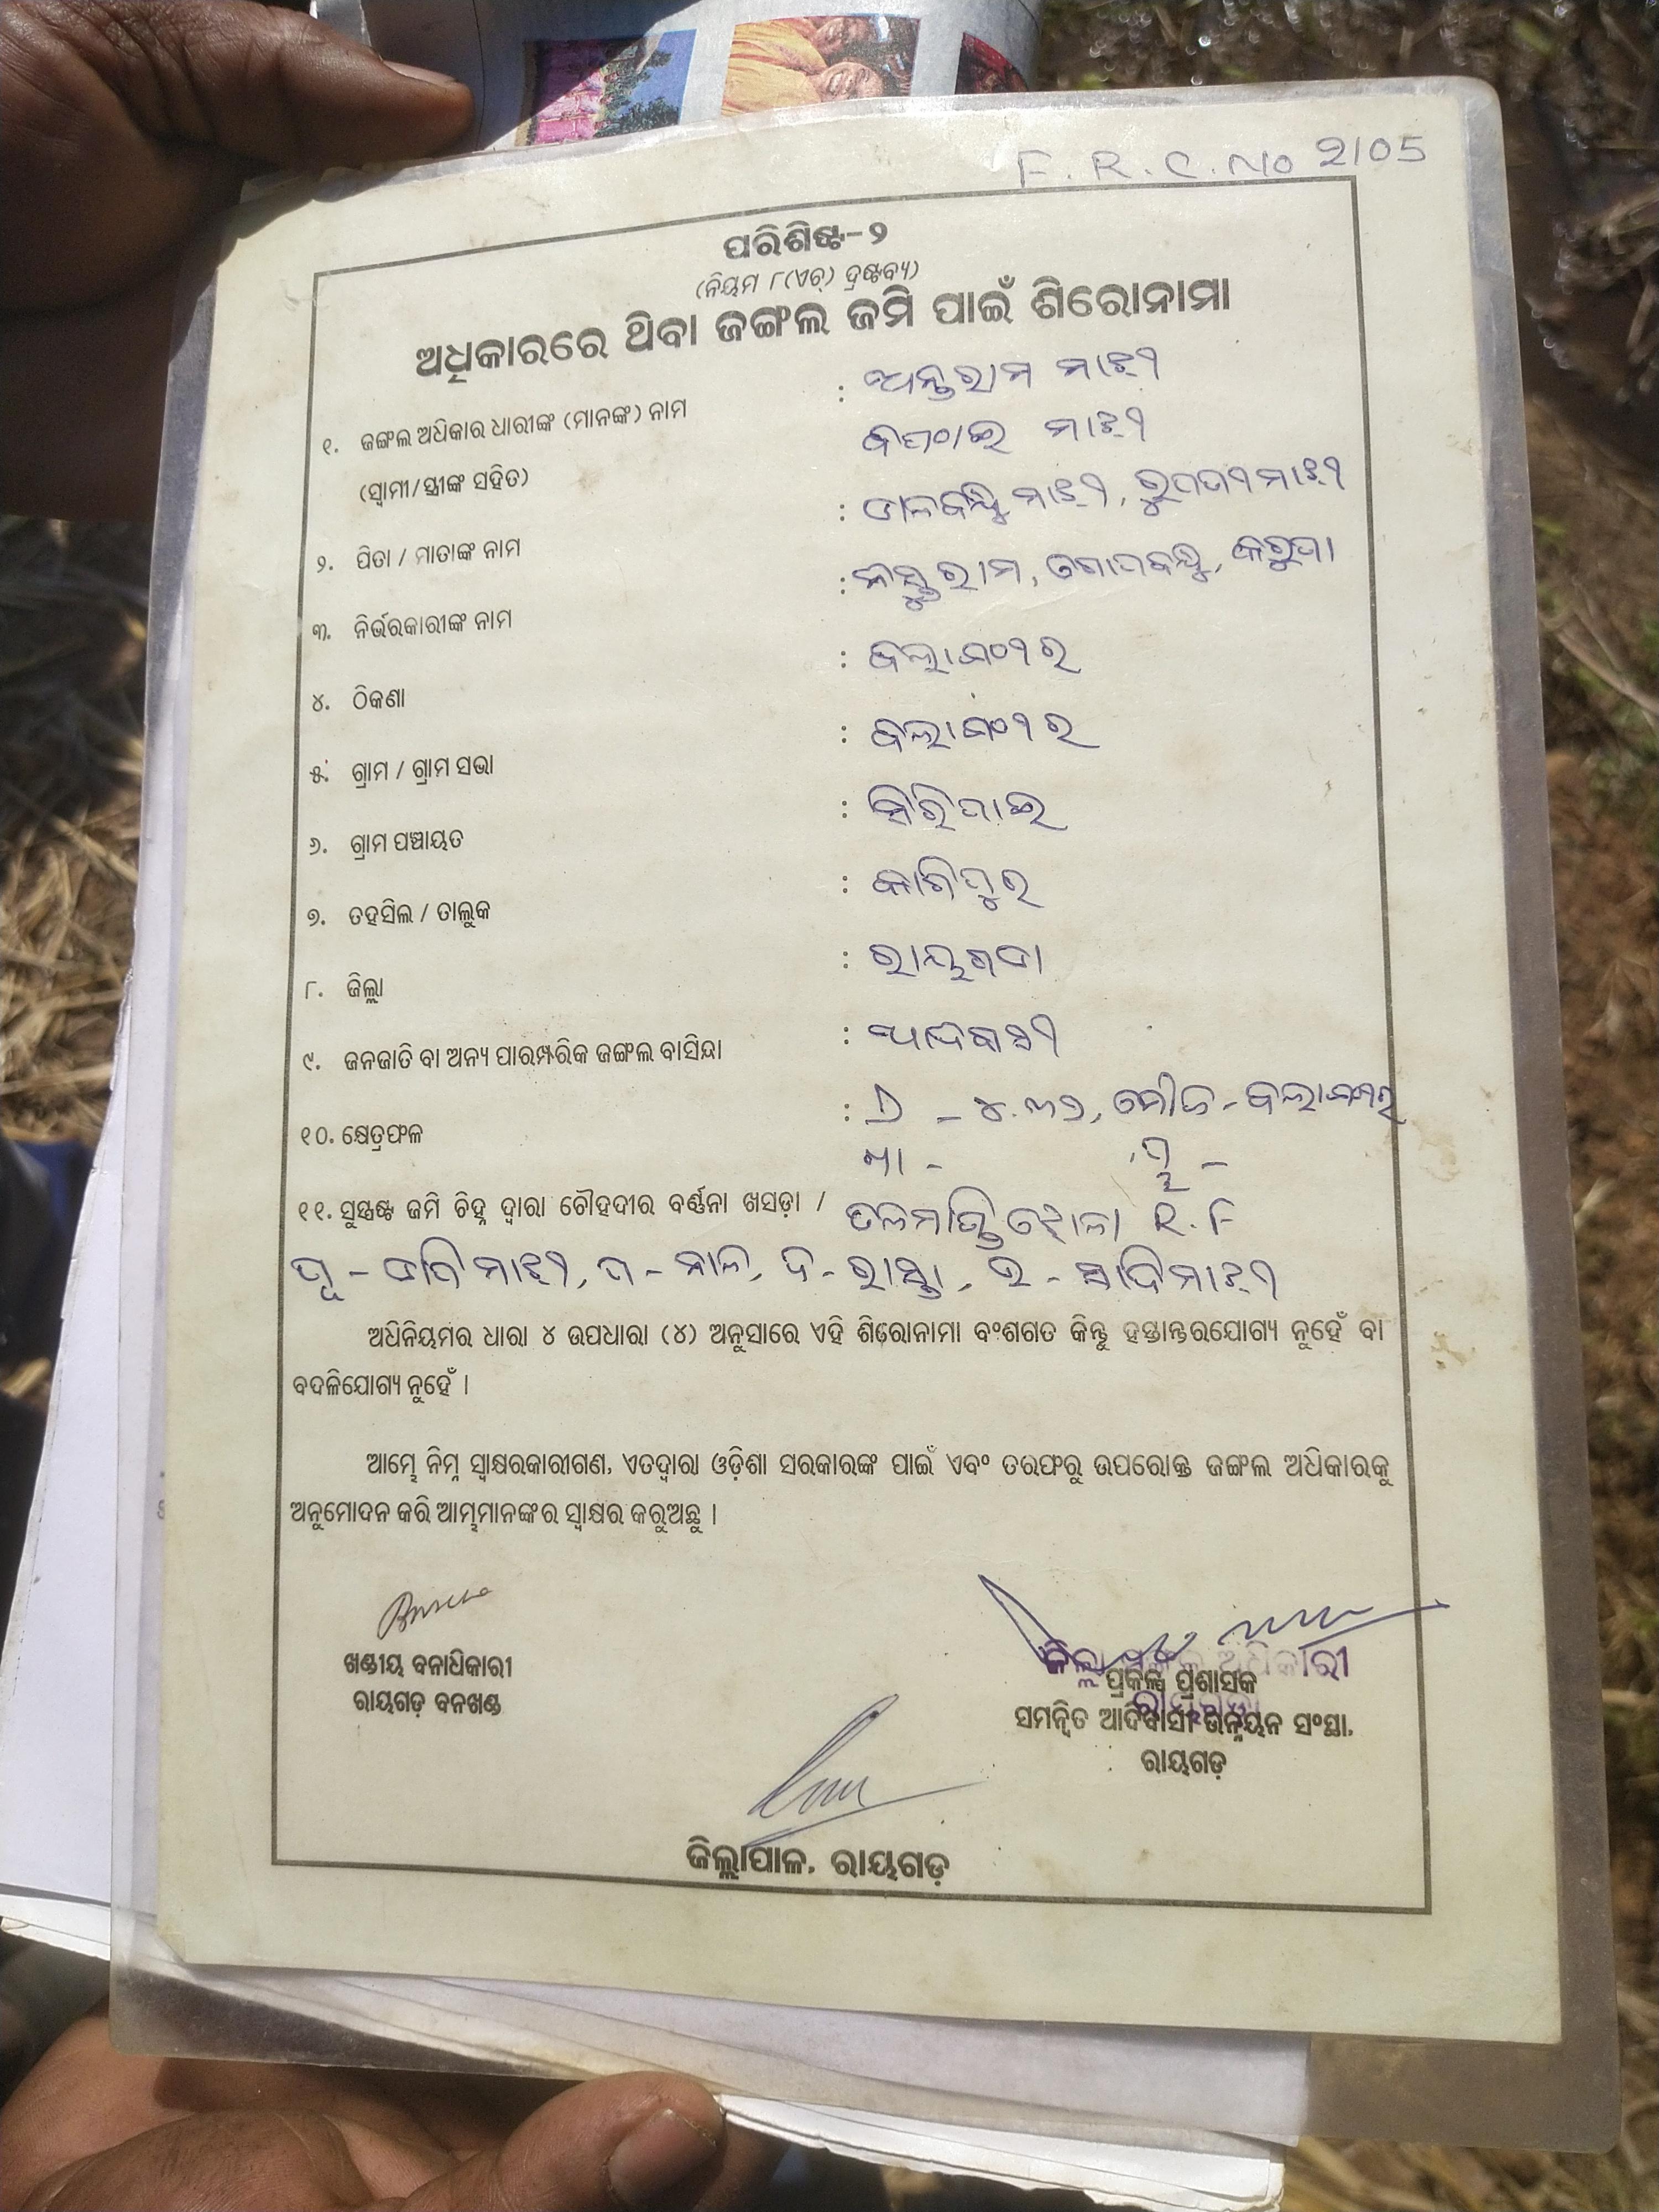 F. R. C. No 2105
ପରିଶିଷ୍ଟ-୨
(ନିୟମ ୮(ଏଚ୍) ଦ୍ରଷ୍ଟବ୍ୟ)
ଅଧିକାରରେ ଥିବା ଜଙ୍ଗଲ ଜମି ପାଇଁ ଶିରୋନାମା
୧. ଜଙ୍ଗଲ ଅଧିକାର ଧାରୀଙ୍କ (ମାନଙ୍କ) ନାମ : ଅନ୍ତରାମ ମାଝୀ
(ସ୍ୱାମୀ/ସ୍ତ୍ରୀଙ୍କ ସହିତ) ମାଝୀ
୨. ପିତା / ମାତାଙ୍କ ନାମ : ମାଝୀ, ମାଝୀ
୩. ନିର୍ଭରକାରୀଙ୍କ ନାମ :
୪. ଠିକଣା :
୫. ଗ୍ରାମ / ଗ୍ରାମ ସଭା :
୬. ଗ୍ରାମ ପଞ୍ଚାୟତ : ସିରିପାଇ
୭. ତହସିଲ / ତାଲୁକ : କାଶିପୁର
୮. ଜିଲ୍ଲା : ରାୟଗଡା
୯. ଜନଜାତି ବା ଅନ୍ୟ ପାରମ୍ପରିକ ଜଙ୍ଗଲ ବାସିନ୍ଦା : ଆଦିବାସୀ
୧୦. କ୍ଷେତ୍ରଫଳ : ୪.୩୨, ମୌଜା-
ଖା - ପ୍ଲ -
୧୧. ସୁସ୍ପଷ୍ଟ ଜମି ଚିହ୍ନ ଦ୍ୱାରା ଚୌହଦୀର ବର୍ଣ୍ଣନା ଖସଡ଼ା / R. F
ପୂ - ମାଝୀ, ପ - ନାଳ, ଦ - ରାସ୍ତା, ଉ - ମାଝୀ
ଅଧିନିୟମର ଧାରା ୪ ଉପଧାରା (୪) ଅନୁସାରେ ଏହି ଶିରୋନାମା ବଂଶଗତ କିନ୍ତୁ ହସ୍ତାନ୍ତରଯୋଗ୍ୟ ନୁହେଁ ବା
ବଦଳିଯୋଗ୍ୟ ନୁହେଁ ।
ଆମ୍ଭେ ନିମ୍ନ ସ୍ୱାକ୍ଷରକାରୀଗଣ, ଏତଦ୍ୱାରା ଓଡ଼ିଶା ସରକାରଙ୍କ ପାଇଁ ଏବଂ ତରଫରୁ ଉପରୋକ୍ତ ଜଙ୍ଗଲ ଅଧିକାରକୁ
ଅନୁମୋଦନ କରି ଆମ୍ଭମାନଙ୍କର ସ୍ୱାକ୍ଷର କରୁଅଛୁ ।
ଖଣ୍ଡୀୟ ବନାଧିକାରୀ
ରାୟଗଡ଼ ବନଖଣ୍ଡ
ଜିଲ୍ଲା ଅଧିକାରୀ
ପ୍ରକଳ୍ପ ପ୍ରଶାସକ
ସମନ୍ୱିତ ଆଦିବାସୀ ଉନ୍ନୟନ ସଂସ୍ଥା,
ରାୟଗଡ଼
ଜିଲ୍ଲାପାଳ, ରାୟଗଡ଼